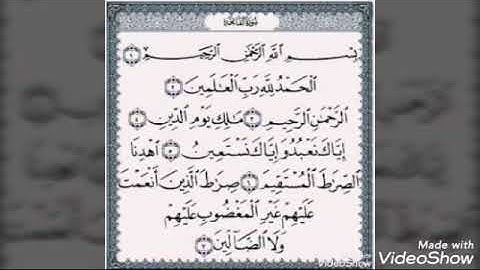 سورة الفاتحة
بِسْمِ اللَّهِ الرَّحْمَٰنِ الرَّحِيمِ ١
الْحَمْدُ لِلَّهِ رَبِّ الْعَالَمِينَ ٢
الرَّحْمَٰنِ الرَّحِيمِ ٣ مَالِكِ يَوْمِ الدِّينِ ٤
إِيَّاكَ نَعْبُدُ وَإِيَّاكَ نَسْتَعِينُ ٥ اهْدِنَا
الصِّرَاطَ الْمُسْتَقِيمَ ٦ صِرَاطَ الَّذِينَ أَنْعَمْتَ
عَلَيْهِمْ غَيْرِ الْمَغْضُوبِ عَلَيْهِمْ
وَلَا الضَّالِّينَ ٧
Made with
VideoShow